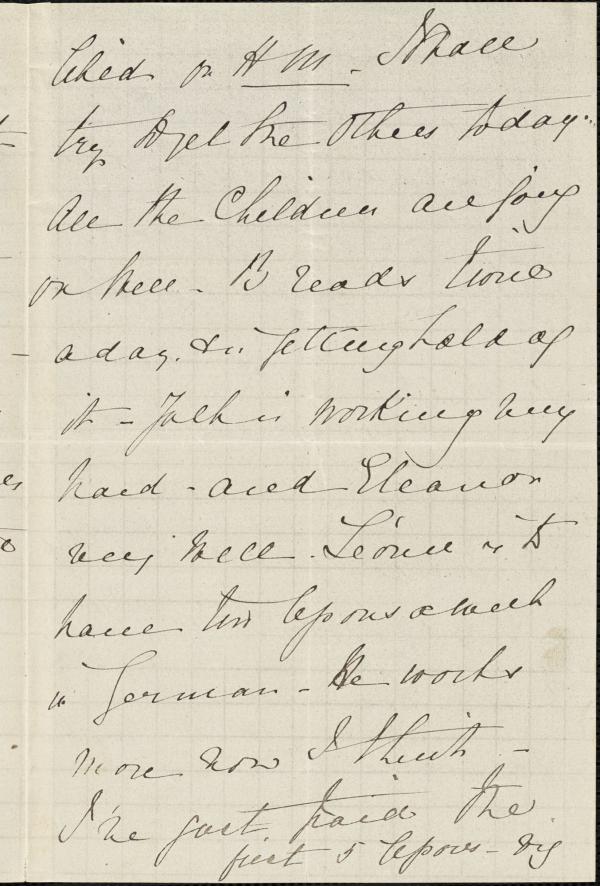 child on H M. I shall
try to get the others today.
All the Children are going
on well - B reads twice
a day. & is getting hold of
it - Jack is working very
hard - and Eleanor
very well. Léonie is to
have two lessons a week
in German - He works
more now I think -
I've just paid the
first 5 lessons -